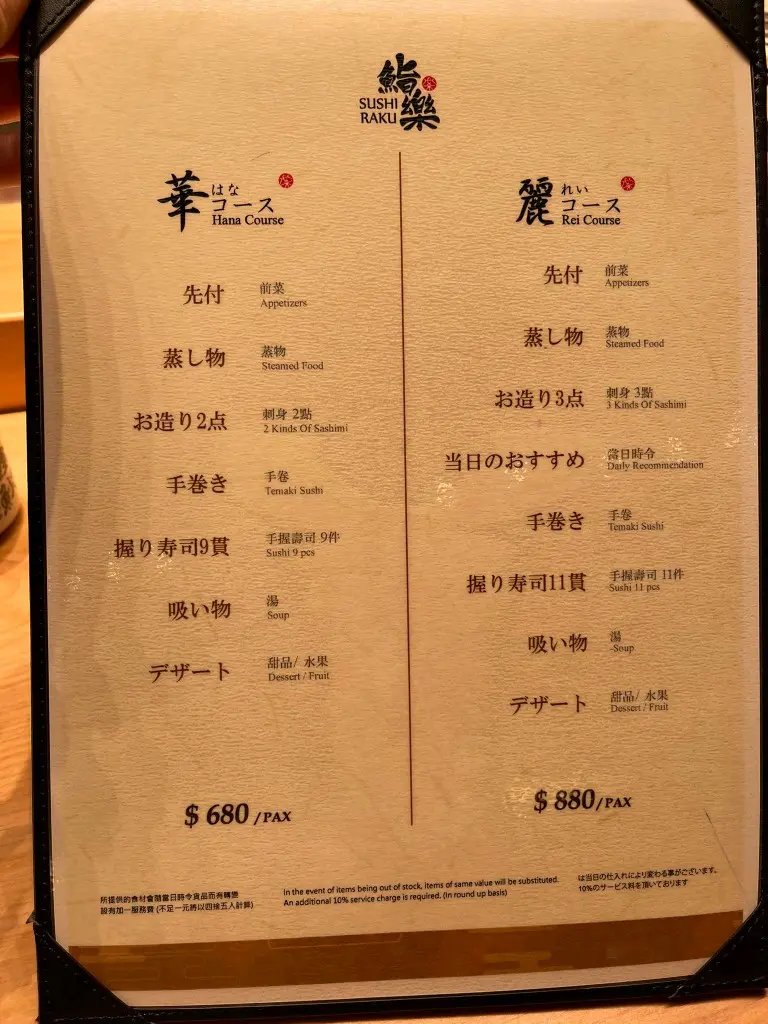 鮨樂
SUSHI
RAKU
華 はな
コース
Hana Course
先付 前菜
Appetizers
蒸し物 蒸物
Steamed Food
お造り2点 刺身 2點
2 Kinds Of Sashimi
手巻き 手卷
Temaki Sushi
握り寿司9貫 手握壽司 9件
Sushi 9 pcs
吸い物 湯
Soup
デザート 甜品/ 水果
Dessert / Fruit
$ 680 /PAX
麗 れい
コース
Rei Course
先付 前菜
Appetizers
蒸し物 蒸物
Steamed Food
お造り3点 刺身 3點
3 Kinds Of Sashimi
当日のおすすめ 當日時令
Daily Recommendation
手巻き 手卷
Temaki Sushi
握り寿司11貫 手握壽司 11件
Sushi 11 pcs
吸い物 湯
Soup
デザート 甜品/ 水果
Dessert / Fruit
$ 880/PAX
所提供的食材會隨當日時令貨品而有轉變
設有加一服務費 (不足一元將以四捨五入計算)
In the event of items being out of stock, items of same value will be substituted.
An additional 10% service charge is required. (In round up basis)
は当日の仕入れにより変わる事がございます。
10%のサービス料を頂いております